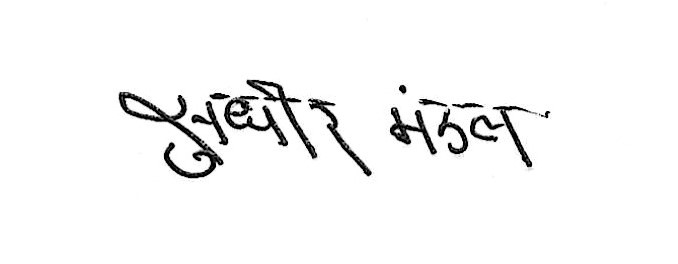 सुधीर मंडल